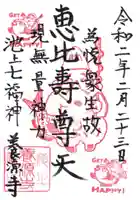 令和二年二月二十三日
為悦衆生故
恵比壽尊天
現無量神力
池上七福神
養源寺
GET A
HAPPY!
GET A
HAPPY!